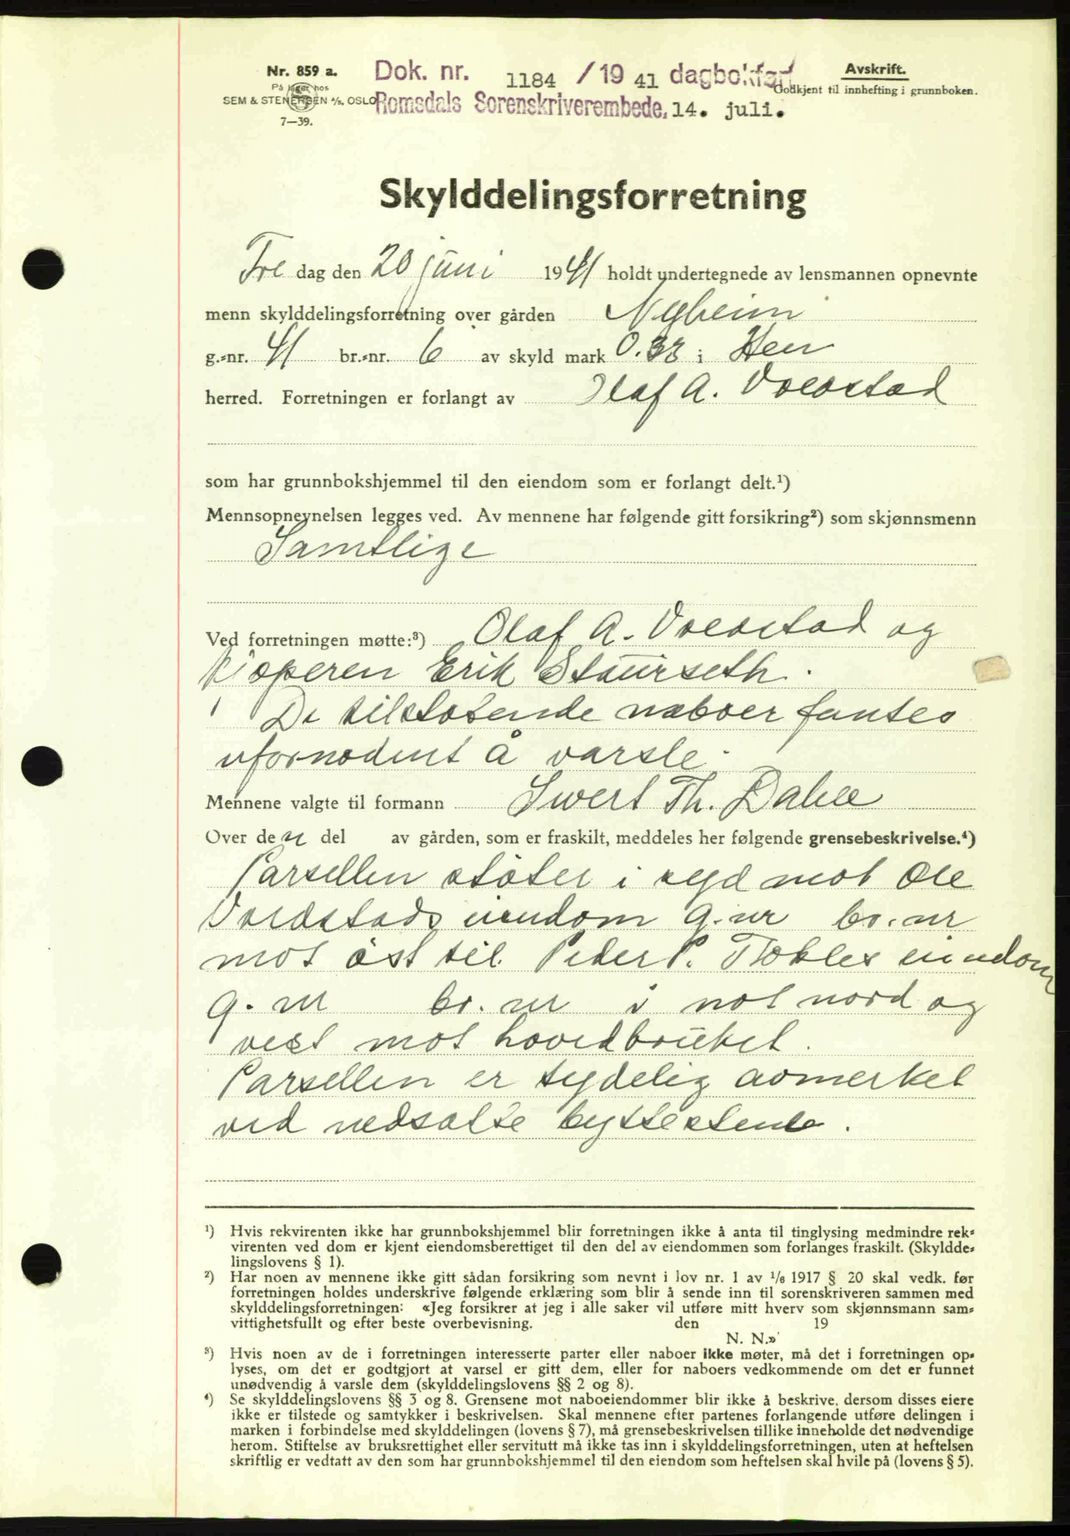 Nr. 859 a.
På lager hos
SEM & STENERSEN A/S, OSLO
7—39.
Dok. nr. 1184 /19 41 dagbokført
Romsdals Sorenskriverembede, 14. juli.
Avskrift.
Godkjent til innhefting i grunnboken.
Skylddelingsforretning
Fre dag den 20 juni 1941 holdt undertegnede av lensmannen opnevnte
menn skylddelingsforretning over gården Nyheim
g.-nr. 41 br.-nr. 6 av skyld mark 0.38 i Hen
herred. Forretningen er forlangt av Olaf A. Voldstad
som har grunnbokshjemmel til den eiendom som er forlangt delt.¹)
Mennsopnevnelsen legges ved. Av mennene har følgende gitt forsikring²) som skjønnsmenn
Samtlige
Ved forretningen møtte:³) Olaf A. Voldstad og
kjøperen Erik Staurseth.
De tilstøtende naboer fantes
ufornødent å varsle.
Mennene valgte til formann Sivert Th. Dahle
Over den del av gården, som er fraskilt, meddeles her følgende grensebeskrivelse.⁴)
Parsellen støter i syd mot Ole
Voldstads eiendom g.nr br.nr
mot øst til Peder P. eiendom
g.nr br.nr i mot nord og
vest mot hovedbruket.
Parsellen er tydelig avmerket
ved nedsatte byttestene.
¹) Hvis rekvirenten ikke har grunnbokshjemmel blir forretningen ikke å anta til tinglysing medmindre rek-
virenten ved dom er kjent eiendomsberettiget til den del av eiendommen som forlanges fraskilt. (Skyldde-
lingslovens § 1).
²) Har noen av mennene ikke gitt sådan forsikring som nevnt i lov nr. 1 av 1/6 1917 § 20 skal vedk. før
forretningen holdes underskrive følgende erklæring som blir å sende inn til sorenskriveren sammen med
skylddelingsforretningen: «Jeg forsikrer at jeg i alle saker vil utføre mitt hverv som skjønnsmann sam-
vittighetsfullt og efter beste overbevisning. den 19
N. N.»
³) Hvis noen av de i forretningen interesserte parter eller naboer ikke møter, må det i forretningen op-
lyses, om det er godtgjort at varsel er gitt dem, eller for naboers vedkommende om det er funnet
unødvendig å varsle dem (skylddelingslovens §§ 2 og 8).
⁴) Se skylddelingslovens §§ 3 og 8. Grensene mot naboeiendommer blir ikke å beskrive, dersom disses eiere
ikke er tilstede og samtykker i beskrivelsen. Skal mennene efter partenes forlangende utføre delingen i
marken i forbindelse med skylddelingen (lovens § 7), må grensebeskrivelsen tillike inneholde det nødvendige
herom. Stiftelse av bruksrettighet eller servitutt må ikke tas inn i skylddelingsforretningen, uten at heftelsen
skriftlig er vedtatt av den som har grunnbokshjemmel til den eiendom som heftelsen skal hvile på (lovens § 5).